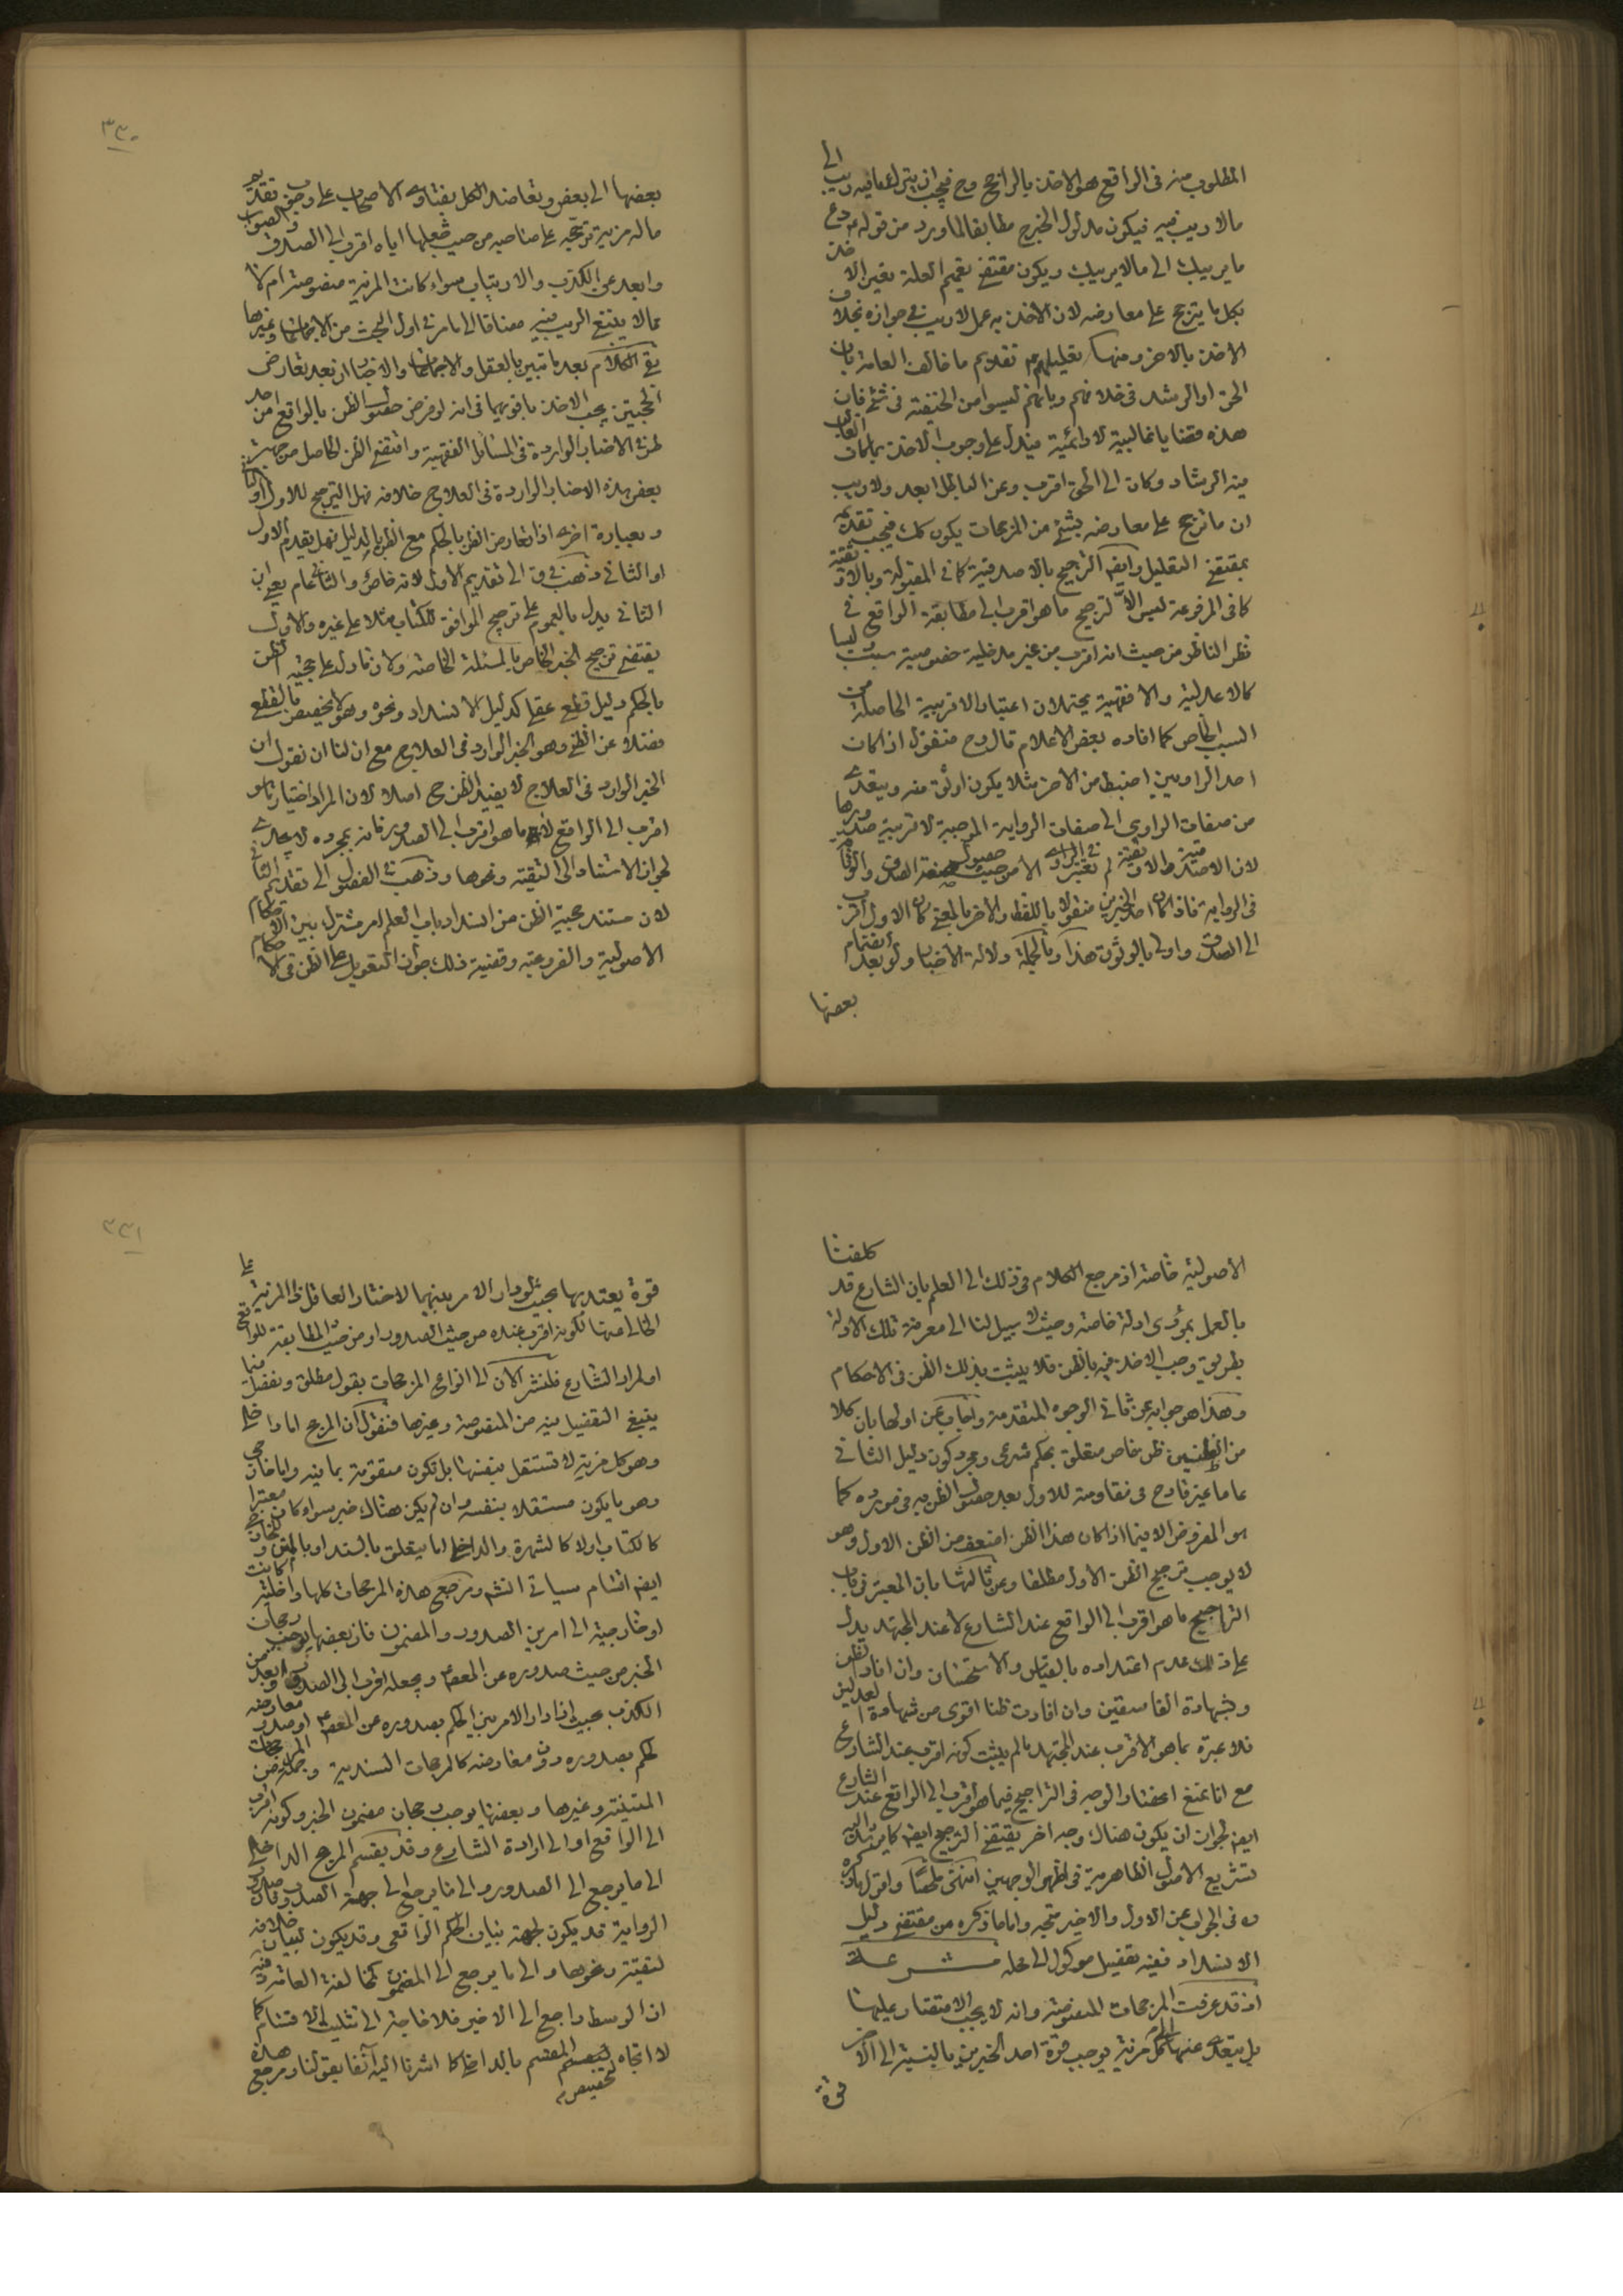 المطلوب منه فى الواقع هو الاخذ بالراجح وح فيجب ان يترك ما فيه ريب الى
ما لا ريب فيه فيكون مدلول الخبر ح مطابقا لما ورد من قوله ع دع
ما يريبك الى ما لا يريبك ويكون مقتضى تعميم العلة تعين الاخذ
بكل ما يترجح على معارضه لان الاخذ به عمل لا ريب فى جوازه بخلاف
الاخذ بالاخر ومنها تعليلهم ع تقديم ما خالف العامة بان
الحق او الرشد فى خلافهم وبانهم ليسوا من الحنيفية فى شئ فان
هذه قضايا غالبية لا دائمية فيدل على وجوب الاخذ بما كان الغالب
فيه الرشاد وكان الى الحق اقرب وعن الباطل ابعد ولا ريب
ان ما ترجح على معارضه بشئ من المرجحات يكون كك فيجب تقديمه
بمقتضى التعليل وايضا الترجيح بالاصدقية كما فى المقبولة وبالاوثقية
كما فى المرفوعة ليس الا لترجيح ما هو اقرب الى مطابقة الواقع فى
نظر الناظر من حيث انه اقرب من غير مدخلية خصوصية سبب وليسا
كالاعدلية والافقهية يحتملان اعتبار الاقربية الحاصلة من
السبب الخاص كما افاده بعض الاعلام قال وح فنقول اذا كان
احد الراويين اضبط من الاخر مثلا يكون اوثق منه ويتعدى
من صفات الراوى الى صفات الرواية الموجبة لاقربية صدورها
لان الاصدقية والاوثقية لم تعتبر فى الراوى الا من حيث حصول صفة الصدق والوثاقة
فى الرواية فاذا كان احد الخبرين منقولا باللفظ والاخر بالمعنى كان الاول اقرب
الى الصدق واولى بالوثوق هذا وبالجملة دلالة الاخبار ولو بعد انضمام
بعضها
٣٣٠
بعضها الى بعض وتعاضد الكل بفتاوى الاصحاب على وجوب تقديم
ما له مزية توجيه على صاحبه من حيث جعلها اياه اقرب الى الصدق والصواب
وابعد عن الكذب والارتياب سواء كانت المزية منصوصة ام لا
مما لا ينبغى الريب فيه مضافا الى ما مر فى اول البحث من الاجماعات وغيرها
بقى الكلام بعد ما تبين بالعقل والاجماعات والاخبار ان بعد تعارض
الحجتين يجب الاخذ باقويهما فى انه لو فرض حصول الظن بالواقع من احد
طرفى الاخبار الواردة فى المسائل الفقهية واقتضى الظن الحاصل من جهة
بعض هذه الاخبار الواردة فى العلاج خلافه فهل الترجيح للاول او للثانى
وبعبارة اخرى اذا تعارض الظن بالحكم مع الظن بالدليل فهل يقدم الاول
او الثانى ذهب فى ق الى تقديم الاول لانه خاص والثانى عام يعنى ان
الثانى يدل بالعموم على ترجيح الموافق للكتاب مثلا على غيره والاول
يقتضى ترجيح الخبر الخاص بالمسئلة الخاصة ولان ما دل على حجية الظن
بالحكم دليل قطعى عقلى كدليل الانسداد ونحوه وهو لا يخصص بالقطع
فضلا عن الظنى وهو الخبر الوارد فى العلاج مع ان لنا ان نقول ان
الخبر الوارد فى العلاج لا يفيد الظن ح اصلا لان المراد اختيار ما هو
اقرب الى الواقع لا ما هو اقرب الى الصدور فانه بمجرده لا يجدى
لجواز الاستناد الى التقية ونحوها وذهب فى الفصول الى تقديم الثانى
لان مستند حجية الظن من انسداد باب العلم امر مشترك بين الاحكام
الاصولية والفرعية وقضية ذلك جواز التعويل على الظن فى الاحكام
الاصولية خاصة اذ مرجع الكلام فى ذلك الى العلم بان الشارع قد كلفنا
بالعمل بمؤدى ادلة خاصة وحيث لا سبيل لنا الى معرفة تلك الادلة
بطريق وجب الاخذ فيه بالظن فلا يثبت بذلك الظن فى الاحكام
وهذا هو جوابه عن ثانى الوجوه المتقدمة واجاب عن اولها بان كلا
من الظنين ظن خاص متعلق بحكم شرعى ومجرد كون دليل الثانى
عاما غير قادح فى مقاومته للاول بعد حصول الظن به فى مورده كما
هو المفروض الا فيما اذا كان هذا الظن اضعف من الظن الاول وهو
لا يوجب ترجيح الظن الاول مطلقا وعن ثالثها بان المعتبر فى باب
التراجيح ما هو اقرب الى الواقع عند الشارع لا عند المجتهد يدل
على ذلك عدم اعتداده بالقياس والاستحسان وان افاد الظن
وبشهادة الفاسقين وان افادت ظنا اقوى من شهادة العدلين
فلا عبرة بما هو الاقرب عند المجتهد ما لم يثبت كونه اقرب عند الشارع
مع انا نمنع انحصار الوجه فى التراجيح فيما هو اقرب الى الواقع عند الشارع
ايضا لجواز ان يكون هناك وجه اخر يقتضى الترجيح ايضا كما يرشد اليه
تشريع الاصول الظاهرية فى اظهر الوجهين انتهى ملخصا واقول ما ذكره
ره فى الجواب عن الاول والاخير متجه واما ما ذكره من مقتضى دليل
الانسداد ففيه تفصيل موكول الى محله مشرعة
اذ قد عرفت المرجحات المنصوصة وانه لا يجب الاقتصار عليها
بل يتعدى عنها الى كل مزية يوجب قوة احد الخبرين بالنسبة الى الاخر
قوة
٣٣١
قوة يعتد بها بحيث لو دار الامر بينهما لاختار العاقل ذى المزية على
الخالى منها لكونه اقرب عنده من حيث الصدور او من حيث المطابقة للواقع
او لمراد الشارع فلنشر الان الى انواع المرجحات بقول مطلق ونفصل فيما
ينبغى التفصيل فيه من المنصوصة وغيرها فنقول ان المرجح اما داخلى
وهو كل مزية لا تستقل بنفسها بل تكون متقومة بما فيه واما خارجى
وهو ما يكون مستقلا بنفسه وان لم يكن هناك خبر سواء كان معتبرا
كالكتاب اولا كالشهرة والداخلى اما يتعلق بالسند او بالمتن وللخارج
ايضا اقسام سياتى انشم ومرجع هذه المرجحات كلها داخلية كانت
او خارجية الى امرين الصدور والمضمون فان بعضها يوجب رجحان
الخبر من حيث صدوره عن المعصوم ويجعله اقرب الى الصدق وابعد من
الكذب بحيث اذا دار الامر بين الحكم بصدوره عن المعصوم او صدور معارضه
لحكم بصدوره دون معارضه كالمرجحات السندية وجملة من المرجحات
المتنية وغيرها وبعضها يوجب رجحان مضمون الخبر وكونه اقرب
الى الواقع او الى ارادة الشارع وقد يقسم المرجح الداخلى
الى ما يرجع الى الصدور والى ما يرجع الى جهة الصدور فان صدور
الرواية قد يكون لجهة بيان الحكم الواقعى وقد يكون لبيان خلافه
لتقية ونحوها والى ما يرجع الى المضمون كمخالفة العامة وفيه
ان الوسط راجع الى الاخير فلا حاجة الى تثليث الاقسام كما
لا اتجاه لتخصيص المقسم بالداخلى كما اشرنا اليه آنفا بقولنا ومرجع هذه